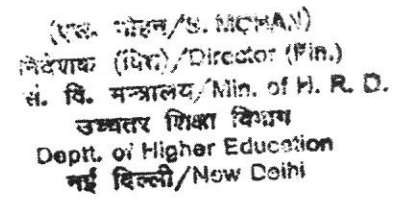 (एस. मोहन/S. MOHAN)
निदेशक (वित्त)/Director (Fin.)
सं. वि. मन्त्रालय/Min. of H. R. D.
उच्चतर शिक्षा विभाग
Deptt. of Higher Education
नई दिल्ली/New Delhi